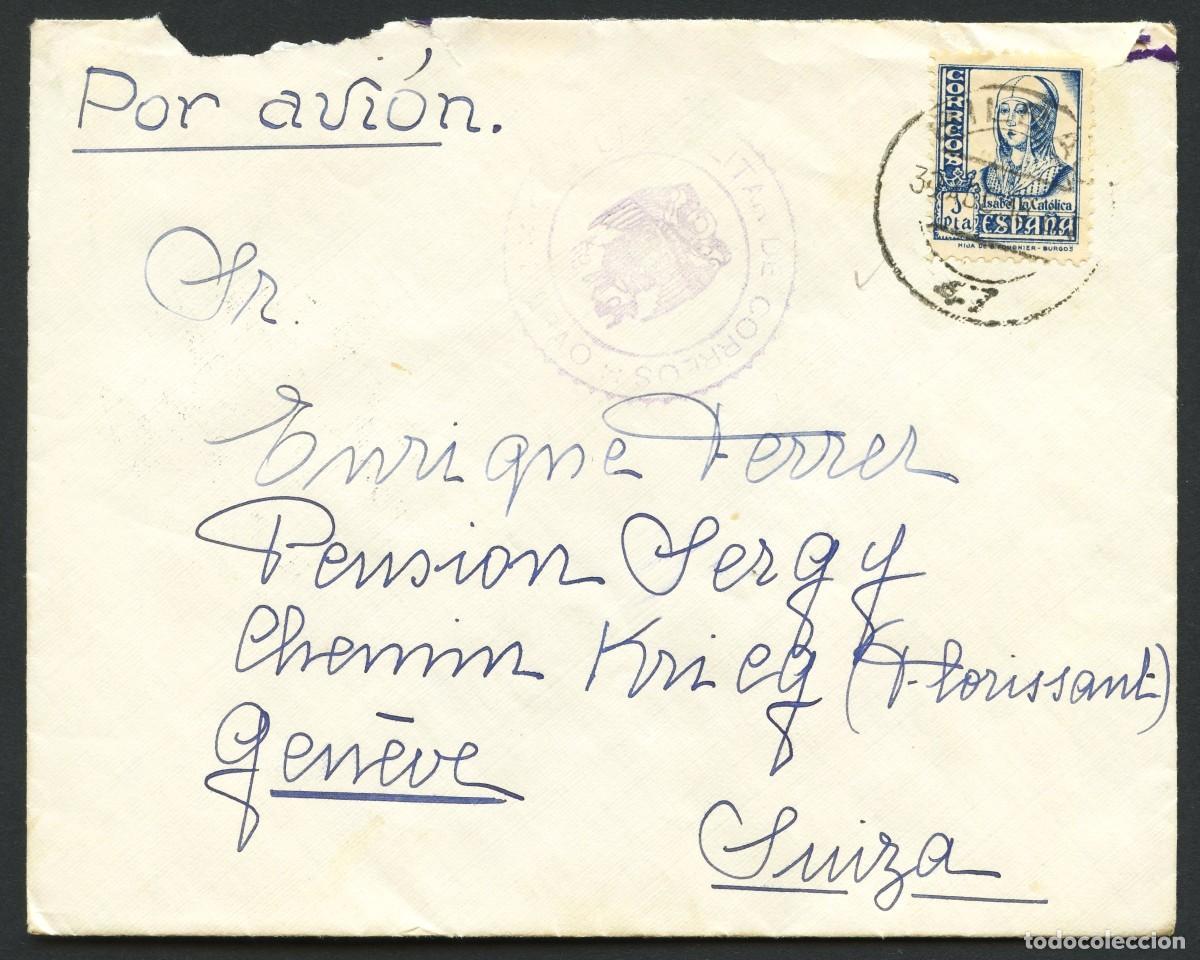 Por avión.
CORREOS
Isabel la Católica
1 Pta ESPAÑA
HIJA DE BURGOS
47
DE CORREOS
Sr.
Enrique Ferrer
Pension Sergy
Chemin Krieg (Florissant)
Genève
Suiza
todocoleccion